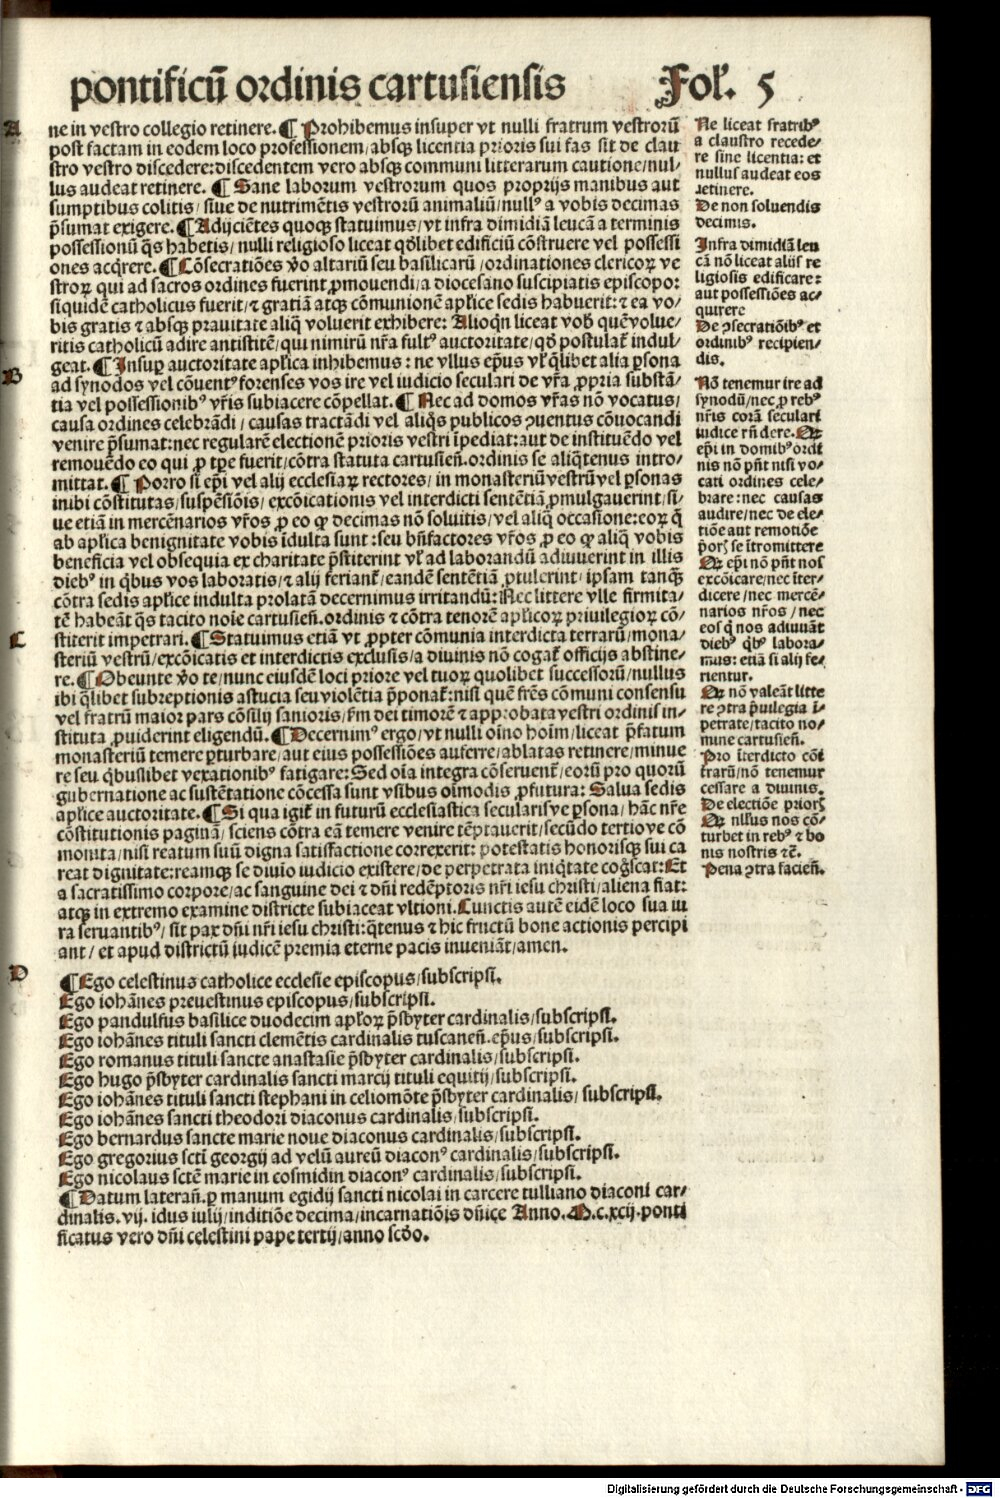 pontificū ordinis cartusiensis Fol. 5
A
ne in vestro collegio retinere. ¶ Prohibemus insuper vt nulli fratrum vestrorū
post factam in eodem loco professionem/absqꝫ licentia prioris sui fas sit de clau
stro vestro discedere:discedentem vero absqꝫ communi litterarum cautione/nul-
lus audeat retinere. ¶ Sane laborum vestrorum quos proprijs manibus aut
sumptibus colitis/siue de nutrimētis vestrorū animaliū/nullꝰ a vobis decimas
p̄sumat exigere. ¶ Adijciētes quoqꝫ statuimus/vt infra dimidiā leucā a terminis
possessionū q̄s habetis/nulli religioso liceat qd̓libet edificiū cōstruere vel possessi
ones acq̄rere. ¶ Cōsecratiōes v̓o altariū seu basilicarū/ordinationes clericoꝝ ve
stroꝝ qui ad sacros ordines fuerint ꝓmouendi/a diocesano suscipiatis episcopo:
siquidē catholicus fuerit/⁊ gratiā atqꝫ cōmunionē apl̓ice sedis habuerit: ⁊ ea vo/
bis gratis ⁊ absqꝫ prauitate aliq̄ voluerit exhibere: Alioq̄n liceat vob̓ quēvolue/
ritis catholicū adire antistitē/qui nimirū nr̄a fultꝰ auctoritate/qd̓ postulat̄ indul/
geat. ¶ Insuꝑ auctoritate apl̓ica inhibemus: ne vllus ep̄us vl̓ q̄libet alia ꝑsona
B
ad synodos vel cōuentꝰ forenses vos ire vel iudicio seculari de vr̄a ꝓpria substā/
tia vel possessionibꝰ vr̄is subiacere cōpellat. ¶ Nec ad domos vr̄as nō vocatus/
causa ordines celebrādi/causas tractādi vel aliq̄s publicos ꝯuentus cōuocandi
venire p̄sumat:nec regularē electionē prioris vestri īpediat:aut de instituēdo vel
remouēdo eo qui ꝓ tp̄e fuerit/cōtra statuta cartusieñ.ordinis se aliq̄tenus intro/
mittat. ¶ Porro si ep̄i vel alij ecclesiaꝝ rectores/in monasteriū vestrū vel ꝑsonas
inibi cōstitutas/suspēsiōis/excōicationis vel interdicti sentētiā ꝓmulgauerint/si/
ue etiā in mercēnarios vr̄os ꝓ eo ꝙ decimas nō soluitis/vel aliq̄ occasione:eoꝝ q̄
ab apl̓ica benignitate vobis īdulta sunt:seu bn̄factores vr̄os ꝓ eo ꝙ aliq̄ vobis
beneficia vel obsequia ex charitate p̄stiterint vl̓ ad laborandū adiuuerint in illis
diebꝰ in q̄bus vos laboratis/⁊ alij feriant̄/eandē sentētiā ꝓtulerint/ipsam tanq̄ꝫ
cōtra sedis apl̓ice indulta prolatā decernimus irritandū:Nec littere vlle firmita/
tē habeāt q̄s tacito noīe cartusieñ.ordinis ⁊ cōtra tenorē apl̓icoꝝ priuilegioꝝ cō/
C
stiterit impetrari. ¶ Statuimus etiā vt ꝓpter cōmunia interdicta terrarū/mona/
steriū vestrū/excōicatis et interdictis exclusis/a diuinis nō cogat̄ officijs abstine/
re. ¶ Obeunte v̓o te/nunc eiusdē loci priore vel tuoꝝ quolibet successorū/nullus
ibi q̄libet subreptionis astucia seu violētia p̄ponat̄:nisi quē fr̄es cōmuni consensu
vel fratrū maior pars cōsilij sanioris/s̄m dei timorē ⁊ approbata vestri ordinis in/
stituta ꝓuiderint eligendū. ¶ Decernimꝰ ergo/vt nulli oīno hoīm/liceat p̄fatum
monasteriū temere ꝑturbare/aut eius possessiōes auferre/ablatas retinere/minue
re seu q̄buslibet vexationibꝰ fatigare: Sed oīa integra cōseruent̄/eorū pro quorū
gubernatione ac sustētatione cōcessa sunt vsibus oīmodis ꝓfutura: Salua sedis
apl̓ice auctoritate. ¶ Si qua igit̄ in futurū ecclesiastica secularisve ꝑsona/hāc nr̄e
cōstitutionis paginā/sciens cōtra eā temere venire tēptauerit/secūdo tertiove cō
monita/nisi reatum suū digna satisfactione correxerit: potestatis honorisqꝫ sui ca
reat dignitate:reamqꝫ se diuīo iudicio existere/de perpetrata iniq̄tate cog̓scat:Et
a sacratissimo corpore/ac sanguine dei ⁊ dn̄i redēptoris nr̄i iesu christi/aliena fiat:
atqꝫ in extremo examine districte subiaceat vltioni. Cunctis autē eidē loco sua iu
ra seruantibꝰ/sit pax dn̄i nr̄i iesu christi:q̄tenus ⁊ hic fructū bone actionis percipi
ant/et apud districtū iudicē premia eterne pacis inueniāt/amen.
D
¶ Ego celestinus catholice ecclesie episcopus/subscripsi.
Ego iohānes preuestinus episcopus/subscripsi.
Ego pandulfus basilice duodecim apl̓oꝝ p̄sbyter cardinalis/subscripsi.
Ego iohānes tituli sancti clemētis cardinalis tuscaneñ.ep̄us/subscripsi.
Ego romanus tituli sancte anastasie p̄sbyter cardinalis/subscripsi.
Ego hugo p̄sbyter cardinalis sancti marcij tituli equitij/subscripsi.
Ego iohānes tituli sancti stephani in celiomōte p̄sbyter cardinalis/subscripsi.
Ego iohānes sancti theodori diaconus cardinalis/subscripsi.
Ego bernardus sancte marie noue diaconus cardinalis/subscripsi.
Ego gregorius sctī georgij ad velū aureū diaconꝰ cardinalis/subscripsi.
Ego nicolaus sctē marie in cosmidin diaconꝰ cardinalis/subscripsi.
¶ Datum laterañ.ꝑ manum egidij sancti nicolai in carcere tulliano diaconi car/
dinalis.vij.idus iulij/inditiōe decima/incarnatiōis dn̄ice Anno.M.c.xcij.ponti
ficatus vero dn̄i celestini pape tertij/anno scd̓o.
Ne liceat fratribꝰ
a claustro recede/
re sine licentia: et
nullus audeat eos
retinere.
De non soluendis
decimis.
Infra dimidiā leu
cā nō liceat alijs re
ligiosis edificare:
aut possessiōes ac/
quirere
De ꝯsecratiōibꝰ et
ordinibꝰ recipien/
dis.
Nō tenemur ire ad
synodū/nec ꝓ rebꝰ
nr̄is corā seculari
iudice rn̄dere. Qꝙ
ep̄i in domibꝰ ordi
nis nō pn̄t nisi vo/
cati ordines cele/
brare:nec causas
audire/nec de ele/
tiōe aut remotiōe
p̄orꝭ se ītromittere
Qꝙ ep̄i nō pn̄t nos
excōicare/nec īter/
dicere/nec mercē/
narios nr̄os/nec
eos q̄ nos adiuuāt
diebꝰ q̄bꝰ labora/
mus: etiā si alij fe/
rientur.
Qꝙ nō valeāt litte
re ꝯtra p̄uilegia ī/
petrate/tacito no/
mine cartusieñ.
Pro īterdicto cōi
trarū/nō tenemur
cessare a diuinis.
De electiōe priorꝭ
Qꝙ nll̓us nos cō/
turbet in rebꝰ ⁊ bo
nis nostris ⁊c̄.
Pena ꝯtra facieñ.
Digitalisierung gefördert durch die Deutsche Forschungsgemeinschaft - DFG